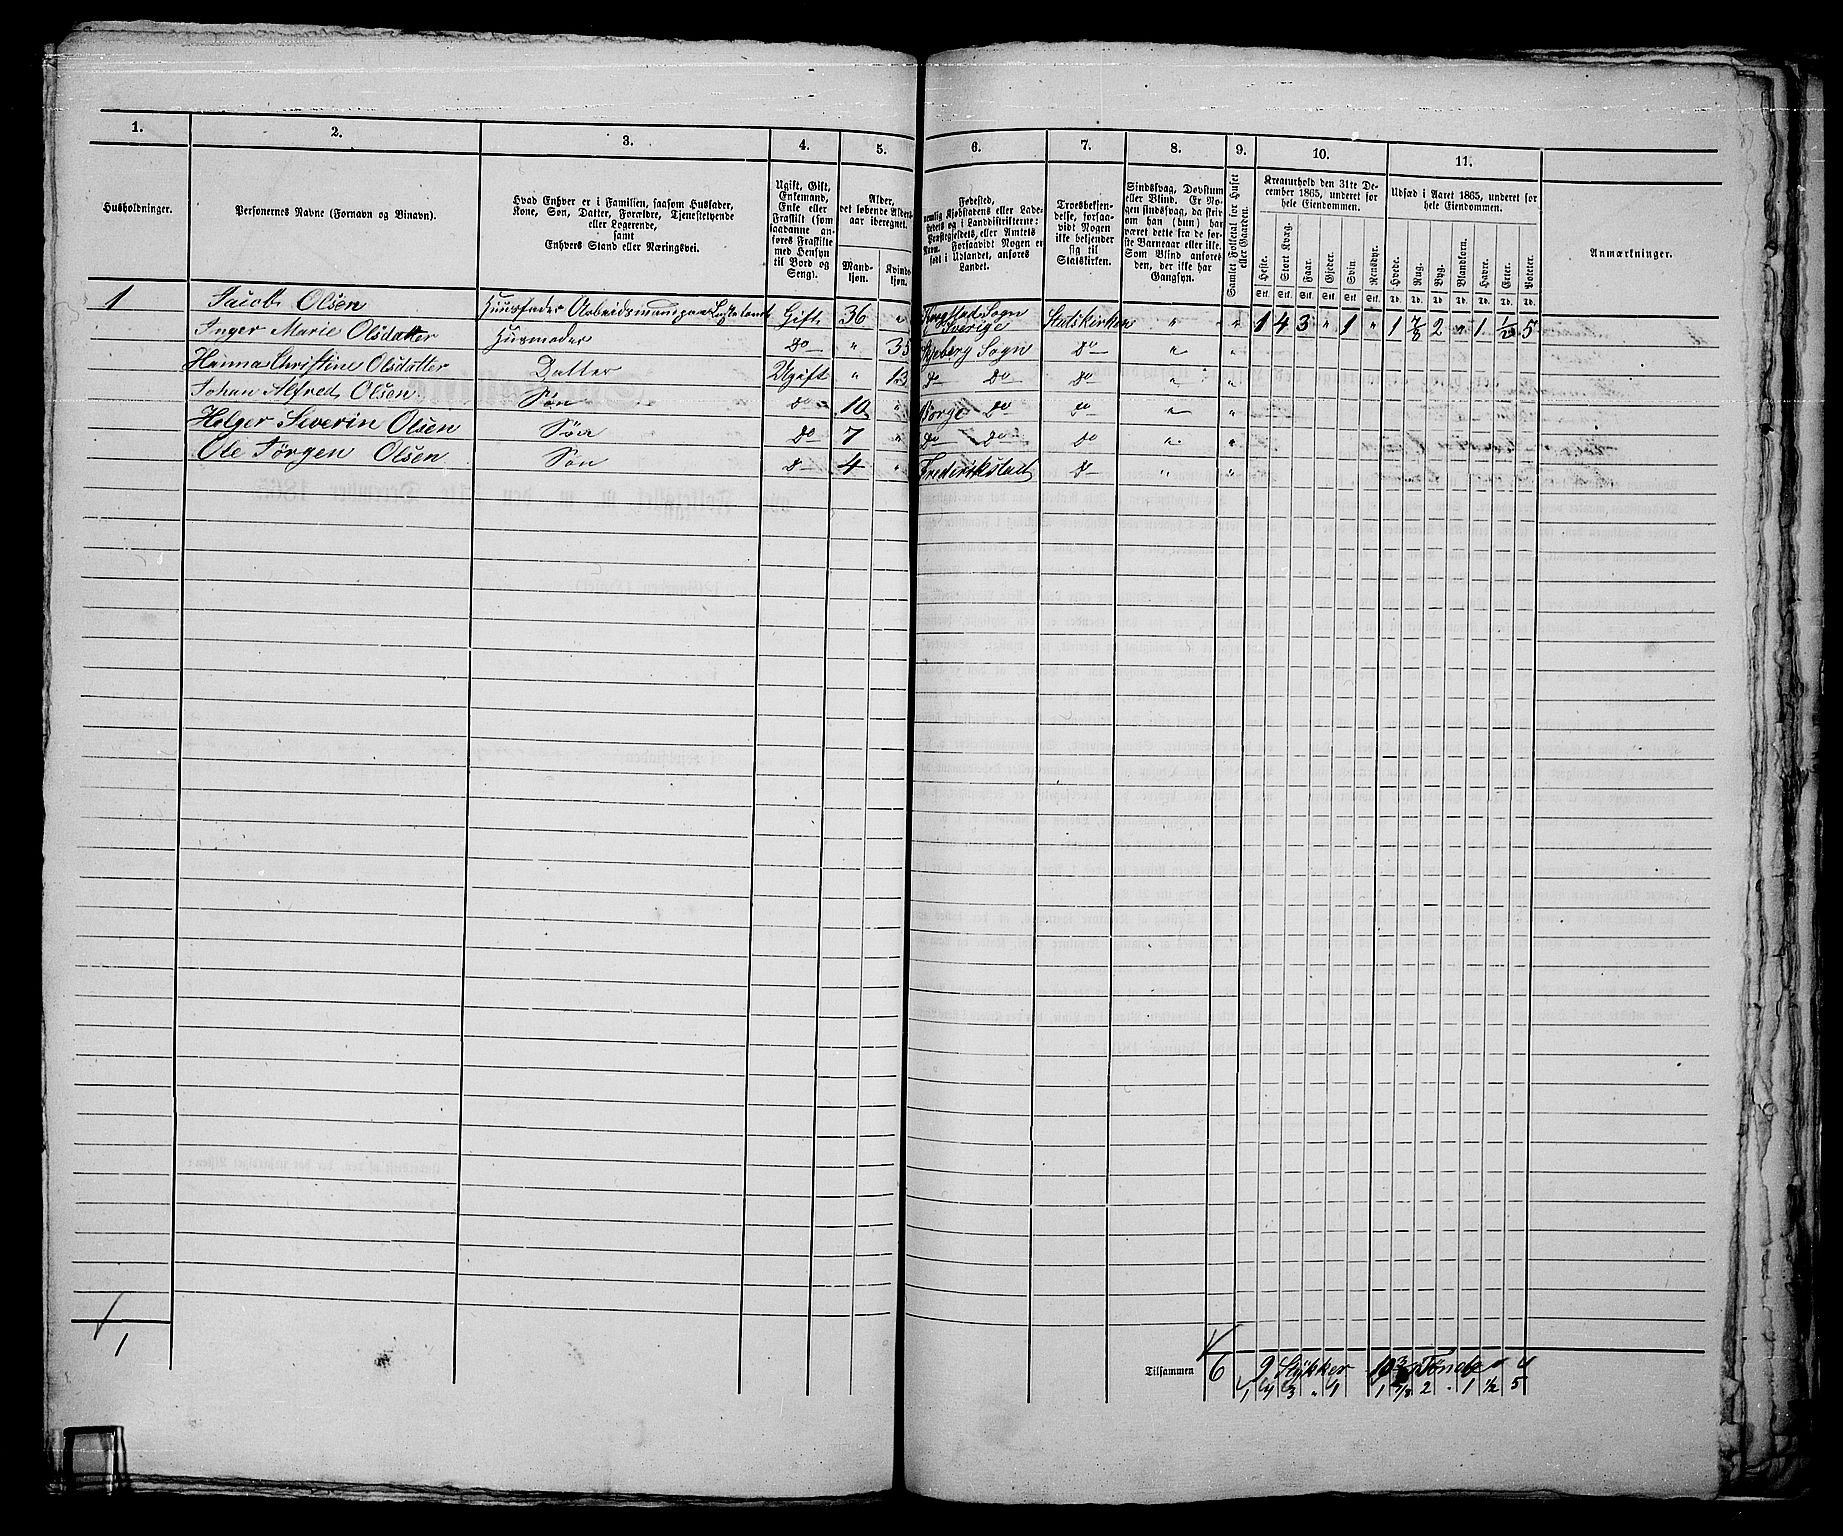 1. 2. 3. 4. 5. 6. 7. 8. 9. 10. 11.
Husholdninger.
Personernes Navne (Fornavn og Tilnavn).
Hvad Enhver er i Familien, saasom Husfader,
Kone, Søn, Datter, Forældre, Tjenestetyende
eller Logerende,
samt
Enhvers Stand eller Næringsvei.
Ugift, Gift,
Enkemand,
Enke eller
Fraskilt (som
saadanne an-
føres Fraskilte
med Hensyn
til Bord og
Seng).
Alder,
det løbende Alders-
aar iberegnet.
Mand-
kjøn.
Kvind-
kjøn.
Fødested,
nemlig Kjøbstadens eller Lade-
stedets og i Landdistrikterne:
Præstegjeldets, eller Amtets
Navn. Forsaavidt Nogen er
født i Udlandet, anføres
Landet.
Troesbekjen-
delse, forsaa-
vidt Nogen
ikke bekjender
sig til
Statskirken.
Sindssvag, Døvstum
eller Blind. Er No-
gen sindssvag, da skri-
ves om han (hun) har
været dette fra de før-
ste Barneaar eller ikke.
Som Blind anføres
den, der ikke har
Gangsyn.
Samlet Folketal for Huset
eller Gaarden.
Kreaturhold den 31te De-
cember 1865, underet for
hele Eiendommen.
Heste. Stort Kvæg. Faar. Gjeder. Svin. Rensdyr.
Stk. Stk. Stk. Stk. Stk. Stk.
Udsæd i Aaret 1865, underet for
hele Eiendommen.
Hvede. Rug. Byg. Blandkorn. Havre. Erter. Poteter.
Td. Td. Td. Td. Td. Td. Td.
Anmærkninger.
1 Jacob Olsen Huusfader Arbeidsmand paa Gift 36 " Sogn Sverige Statskirken " " 1 4 3 " 1 " 1 7/8 2 " 1 1/2 5
Inger Marie Olsdatter Husmoder Do " 35 Skjeberg Sogn Do " "
Hanna Christine Olsdatter Datter Ugift " 13 Do Do Do " "
Johan Alfred Olsen Søn Do 10 " Borge Do Do " "
Holger Severin Olsen Søn Do 7 " Do Do Do " "
Ole Jørgen Olsen Søn Do 4 " Frederikstad Do " "
1
Tilsammen 6 9 Stykker 10 3/8 Tønder
1 4 3 " 1 1 7/8 2 " 1 1/2 5